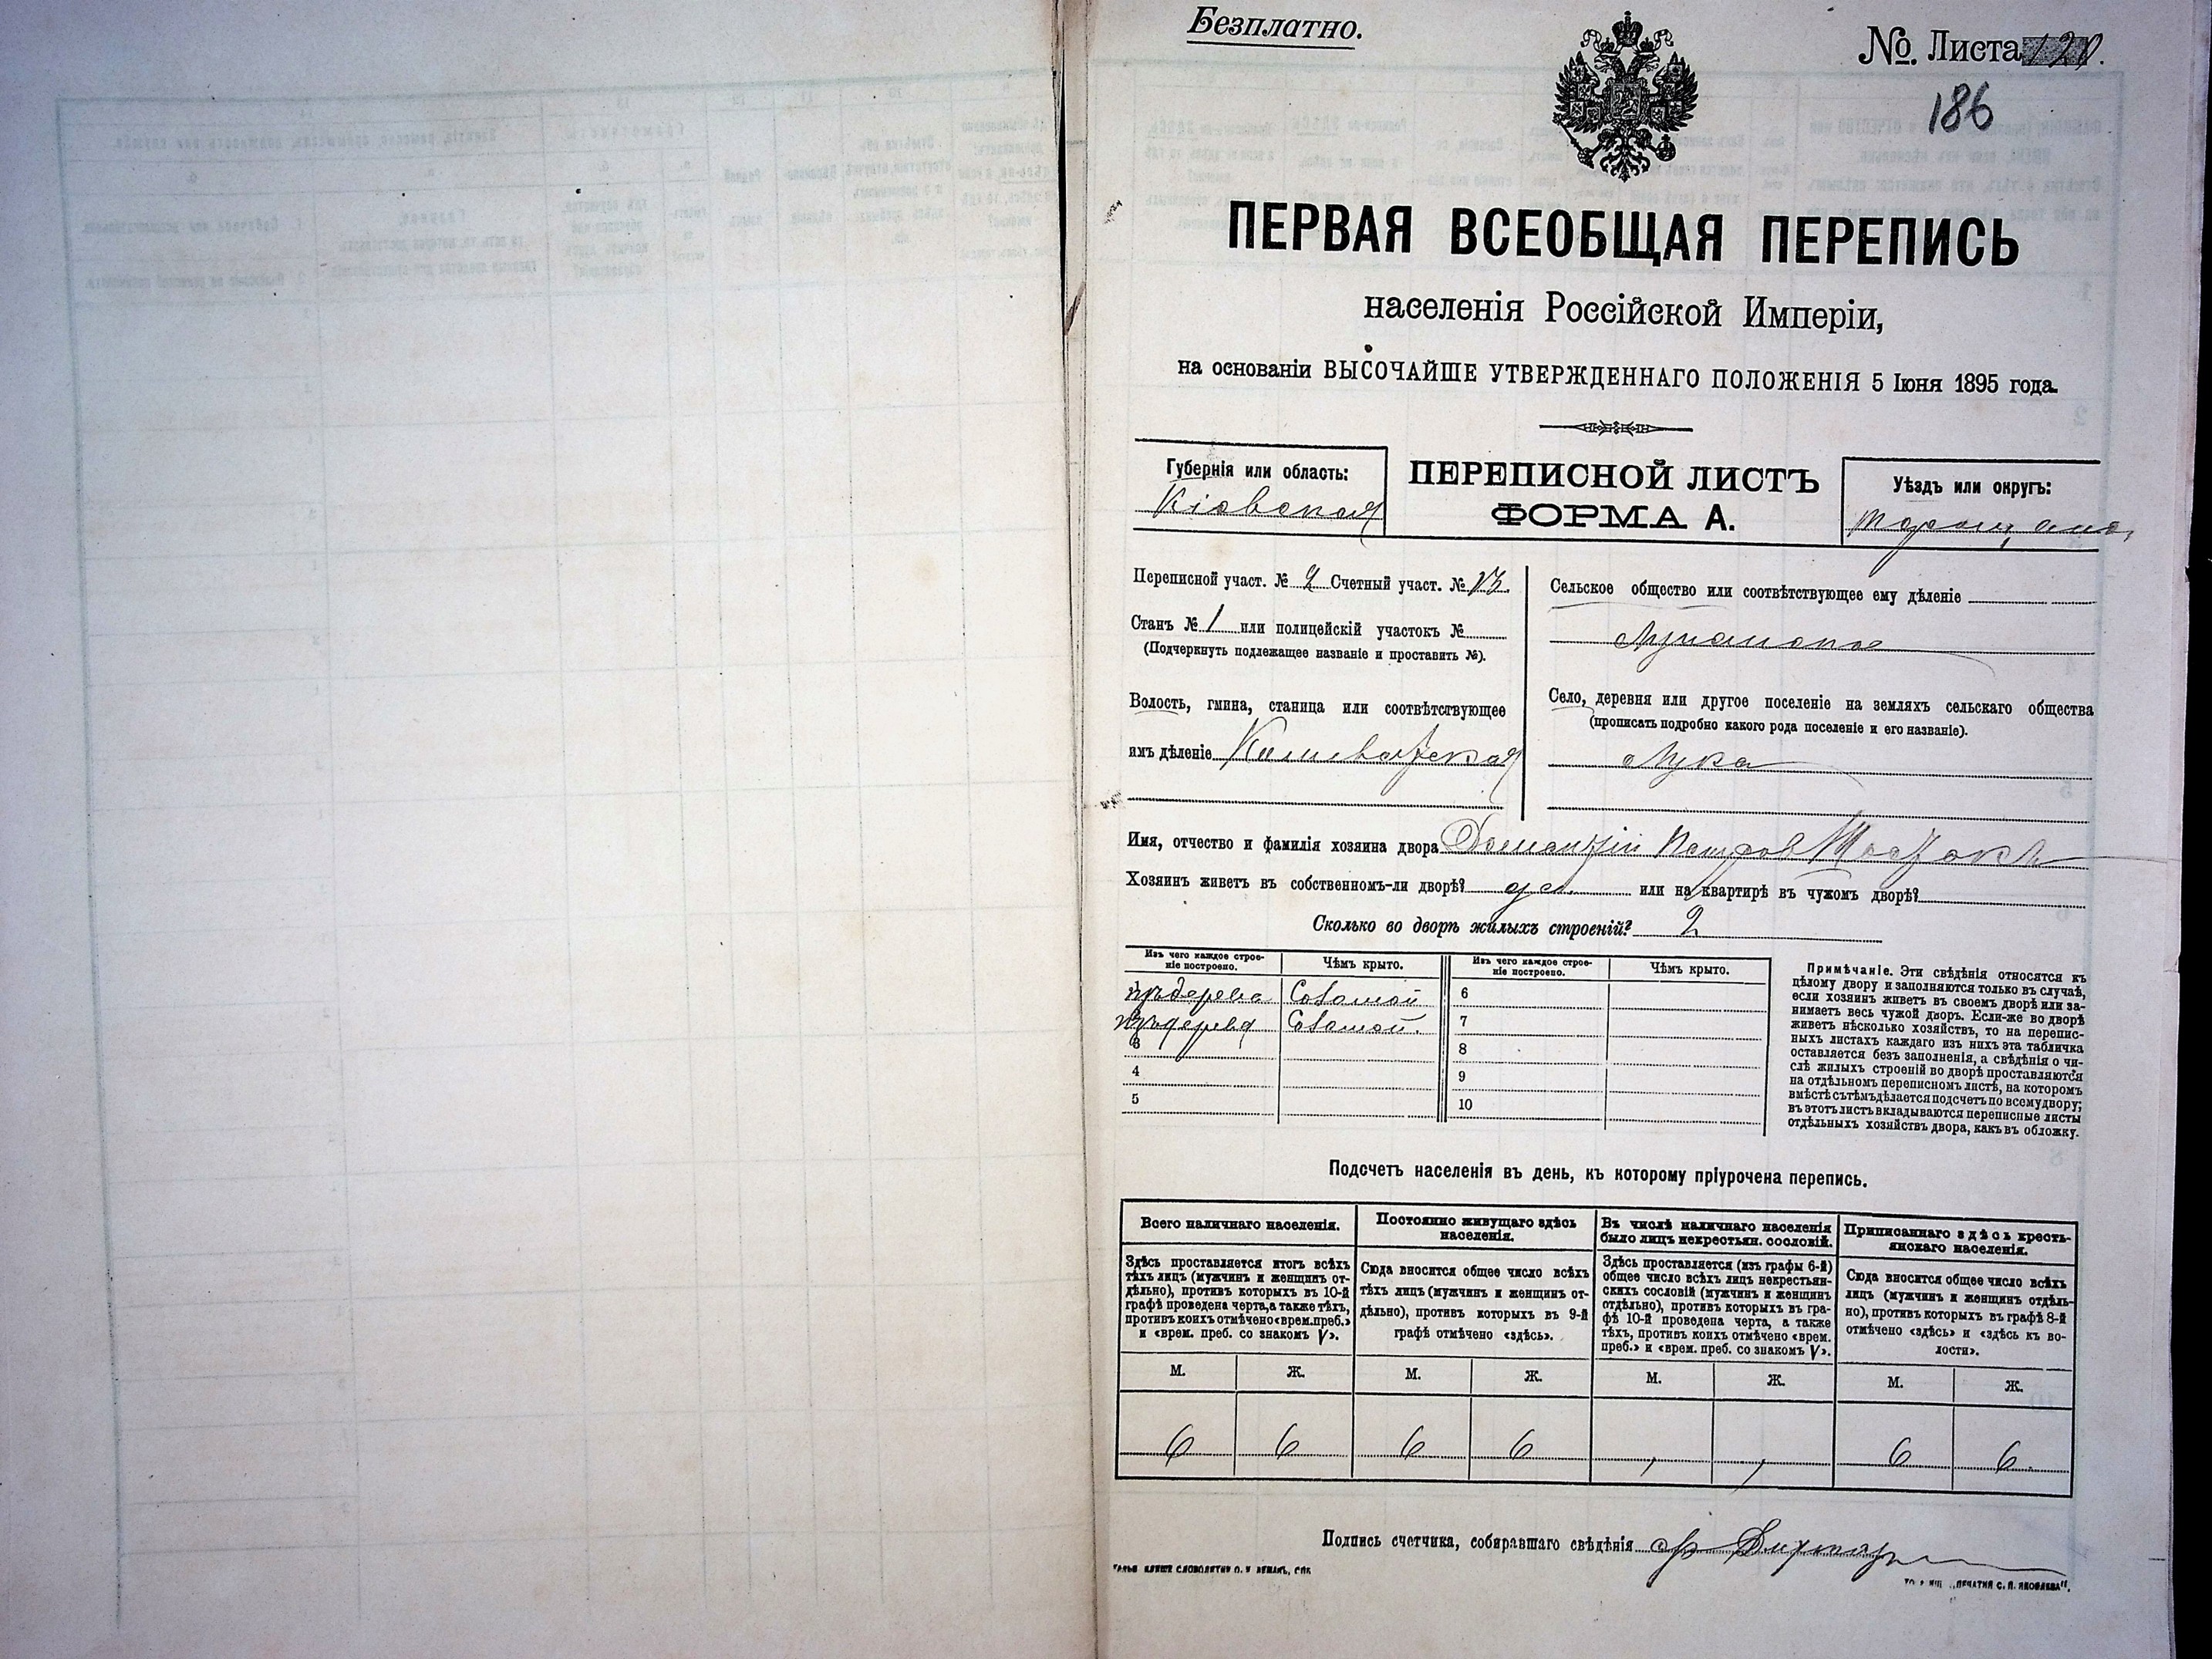 Безплатно.
№. Листа
186
ПЕРВАЯ ВСЕОБЩАЯ ПЕРЕПИСЬ
населенія Россійской Имперіи,
на основаніи ВЫСОЧАЙШЕ УТВЕРЖДЕННАГО ПОЛОЖЕНІЯ 5 Іюня 1895 года.
Губернія или область:
Кіевская
ПЕРЕПИСНОЙ ЛИСТЪ
ФОРМА А.
Уѣздъ или округъ:
Переписной участ. № 2 Счетный участ. № 13.
Станъ № 1 или полицейскій участокъ №
(Подчеркнуть подлежащее названіе и проставить №).
Волость, гмина, станица или соотвѣтствующее
имъ дѣленіе
Сельское общество или соотвѣтствующее ему дѣленіе
Село, деревня или другое поселеніе на земляхъ сельскаго общества
(прописать подробно какого рода поселеніе и его названіе).
Лука
Имя, отчество и фамилія хозяина двора Петров
Хозяинъ живетъ въ собственномъ-ли дворѣ? да. или на квартирѣ въ чужомъ дворѣ?
Сколько во дворѣ жилыхъ строеній? 2
Изъ чего каждое строе-
ніе построено.
Чѣмъ крыто.
Изъ чего каждое строе-
ніе построено.
Чѣмъ крыто.
изъ дерева Соломой 6
изъ дерева Соломой. 7
3 8
4 9
5 10
Примѣчаніе. Эти свѣдѣнія относятся къ
цѣлому двору и заполняются только въ случаѣ,
если хозяинъ живетъ въ своемъ дворѣ или за-
нимаетъ весь чужой дворъ. Если-же во дворѣ
живетъ нѣсколько хозяйствъ, то на перепис-
ныхъ листахъ каждаго изъ нихъ эта табличка
оставляется безъ заполненія, а свѣдѣнія о чи-
слѣ жилыхъ строеній во дворѣ проставляются
на отдѣльномъ переписномъ листѣ, на которомъ
вмѣстѣ съ тѣмъ дѣлается подсчетъ по всему двору;
въ этотъ листъ вкладываются переписные листы
отдѣльныхъ хозяйствъ двора, какъ въ обложку.
Подсчетъ населенія въ день, къ которому пріурочена перепись.
Всего наличнаго населенія.
Постоянно живущаго здѣсь
населенія.
Въ числѣ наличнаго населенія
было лицъ некрестьян. сословій.
Приписаннаго здѣсь кресть-
янскаго населенія.
Здѣсь проставляется итогъ всѣхъ
тѣхъ лицъ (мужчинъ и женщинъ от-
дѣльно), противъ которыхъ въ 10-й
графѣ проведена черта, а также тѣхъ,
противъ коихъ отмѣчено «врем. преб.»
и «врем. преб. со знакомъ V».
Сюда вносится общее число всѣхъ
тѣхъ лицъ (мужчинъ и женщинъ от-
дѣльно), противъ которыхъ въ 9-й
графѣ отмѣчено «здѣсь».
Здѣсь проставляется (изъ графы 6-й)
общее число всѣхъ лицъ некрестьян-
скихъ сословій (мужчинъ и женщинъ
отдѣльно), противъ которыхъ въ гра-
фѣ 10-й проведена черта, а также
тѣхъ, противъ коихъ отмѣчено «врем.
преб.» и «врем. преб. со знакомъ V».
Сюда вносится общее число всѣхъ
лицъ (мужчинъ и женщинъ отдѣль-
но), противъ которыхъ въ графѣ 8-й
отмѣчено «здѣсь» и «здѣсь къ во-
лости».
М. Ж. М. Ж. М. Ж. М. Ж.
6 6 6 6 , , 6 6
Подпись счетчика, собиравшаго свѣдѣнія